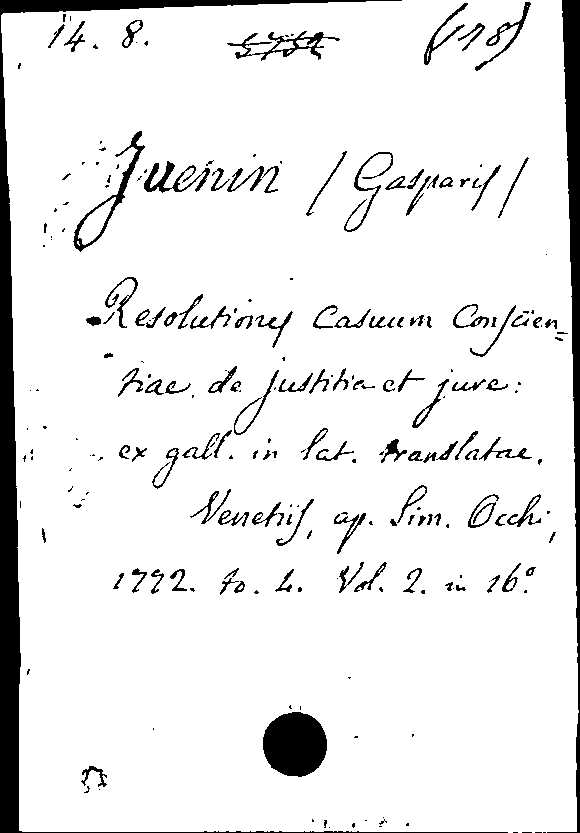 14. 8. 5752 (178)
Juenin / Gasparis /
Resolutiones Casuum Conscien=
tiae de justitia et jure:
ex gall. in lat. translatae.
Venetiis, ap. Sim. Occhi,
1772. to. 4. Vol. 2. in 16°.